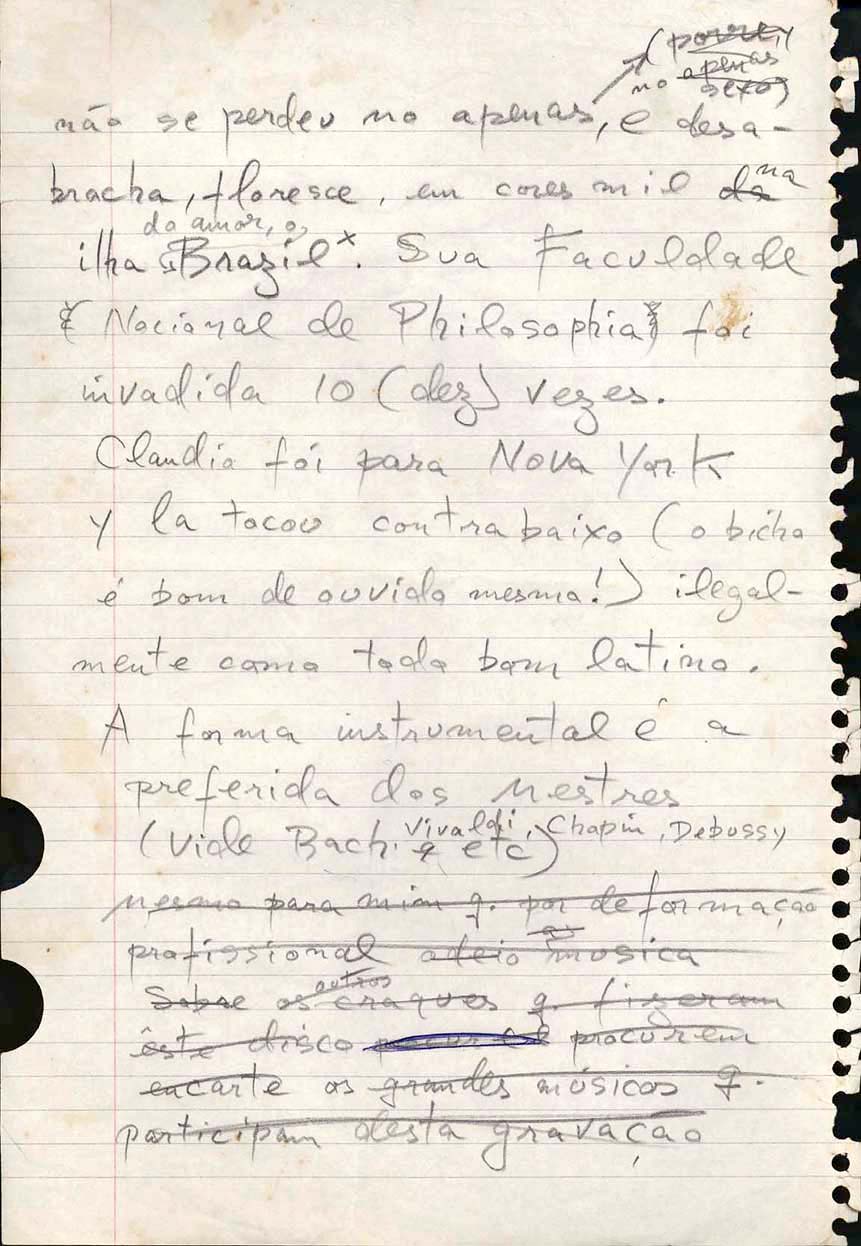 (porre, y
no apenas
sexo)
não se perdeu no apenas, e desa-
bracha, floresce, em cores mil da na
do amor, o
ilha Brazil x. Sua Faculdade
Nacional de Philosophia foi
invadida 10 (dez) vezes.
Claudio foi para Nova York
y la tocou contrabaixo (o bicho
é bom de ouvido mesmo!) ilegal-
mente como todo bom latino.
A forma instrumental é a
preferida dos Mestres
(vide Bach, Vivaldi, Chopin, Debussy
& etc)
Mesmo para mim q. por deformação
profissional odeio as musica
Sobre os outros craques q. fizeram
êste disco procurem
encarte os grandes músicos q.
participam desta gravação